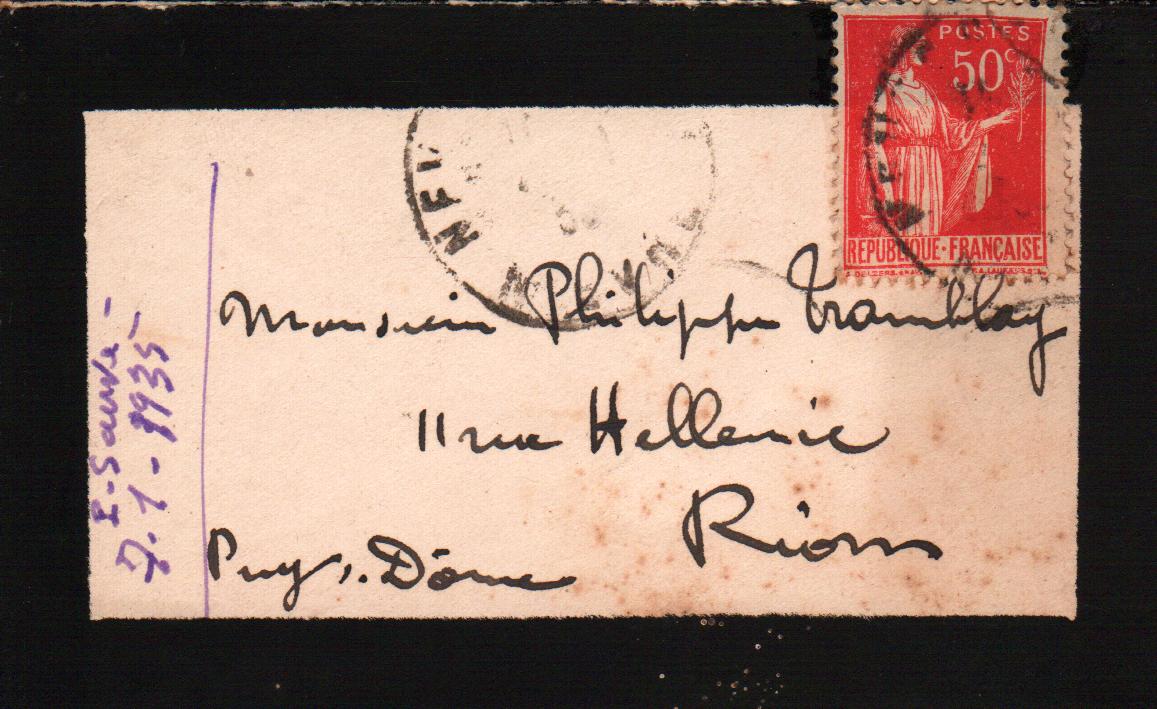 POSTES
50c
REPUBLIQUE·FRANÇAISE
Monsieur Philippe Tramblay
11 rue Hellenie
Riom
Puy. Dôme
7-1-1935-